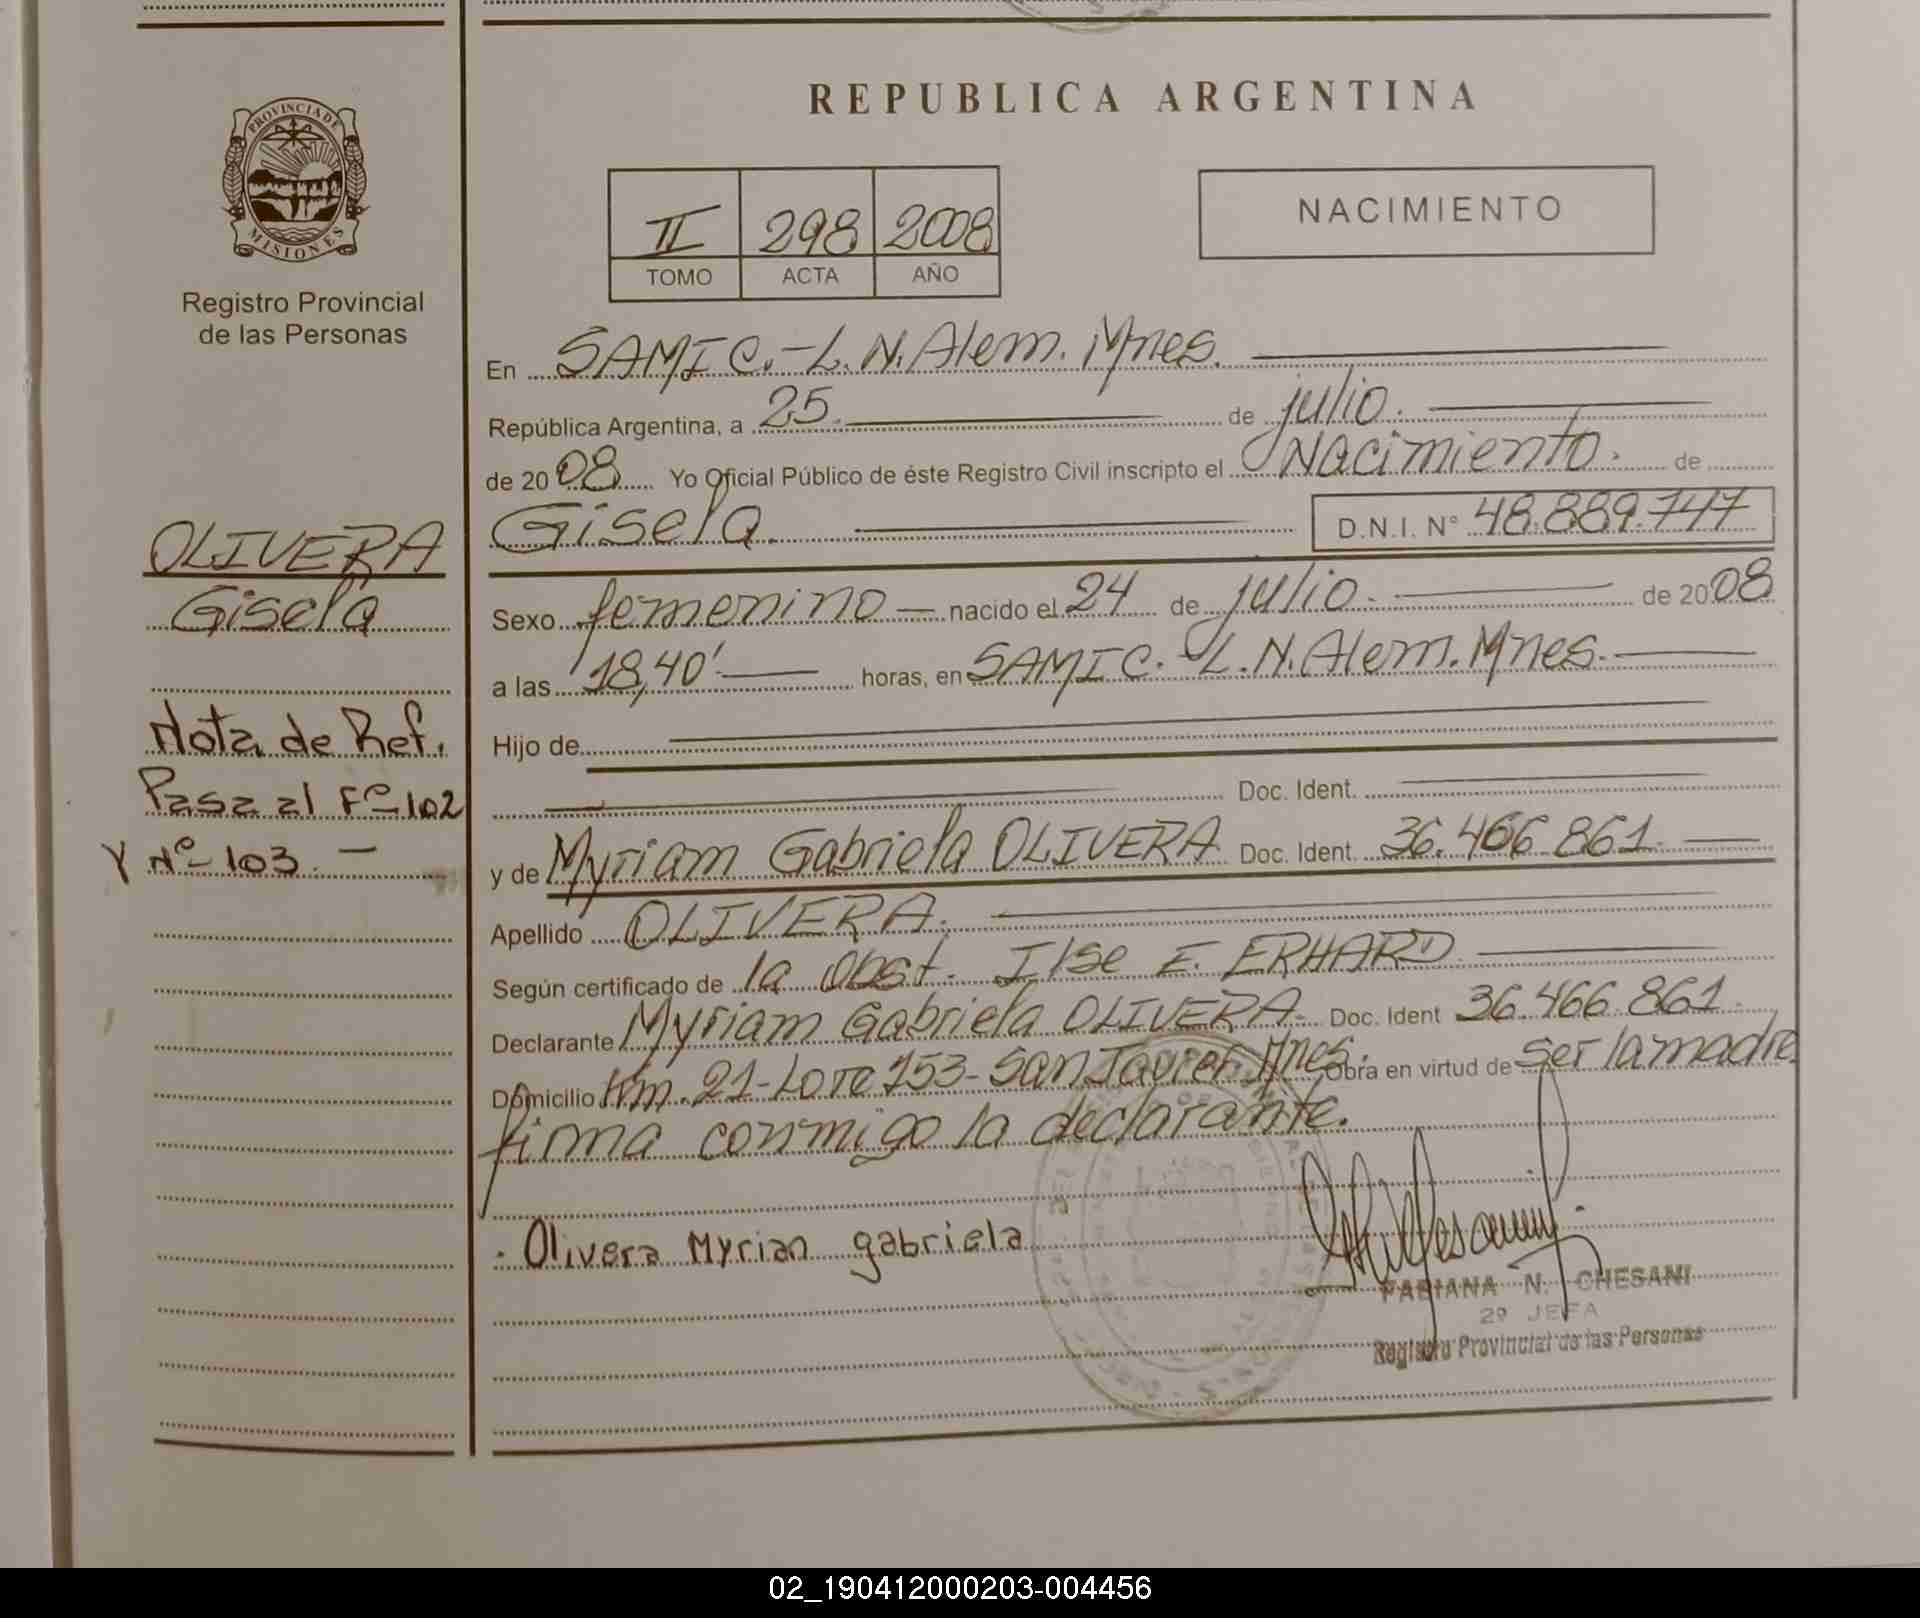 REPUBLICA ARGENTINA
PROVINCIA DE
MISIONES
Registro Provincial
de las Personas
II 298 2008
TOMO ACTA AÑO
NACIMIENTO
En SAMIC.-L.N.Alem.Mnes.
República Argentina, a 25. de julio.
de 2008 Yo Oficial Público de éste Registro Civil inscripto el Nacimiento. de
Gisela. D.N.I. N° 48.889.747
Sexo femenino nacido el 24 de julio. de 2008
a las 18,40' horas, en SAMIC.-L.N.Alem.Mnes.
Hijo de
Doc. Ident.
y de Myriam Gabriela OLIVERA Doc. Ident. 36.466.861.
Apellido OLIVERA.
Según certificado de la Obst. Ilse E. ERHARD
Declarante Myriam Gabriela OLIVERA. Doc. Ident 36.466.861.
Domicilio Km.21-Lote 153-San Javier.Mnes. Obra en virtud de ser la madre.
firma conmigo la declarante.
. Olivera Myrian gabriela
FABIANA N. CHESANI
2º JEFA
Registro Provincial de las Personas
OLIVERA
Gisela
Nota de Ref.
Pasa al Fº-102
Y Nº-103.-
02_190412000203-004456